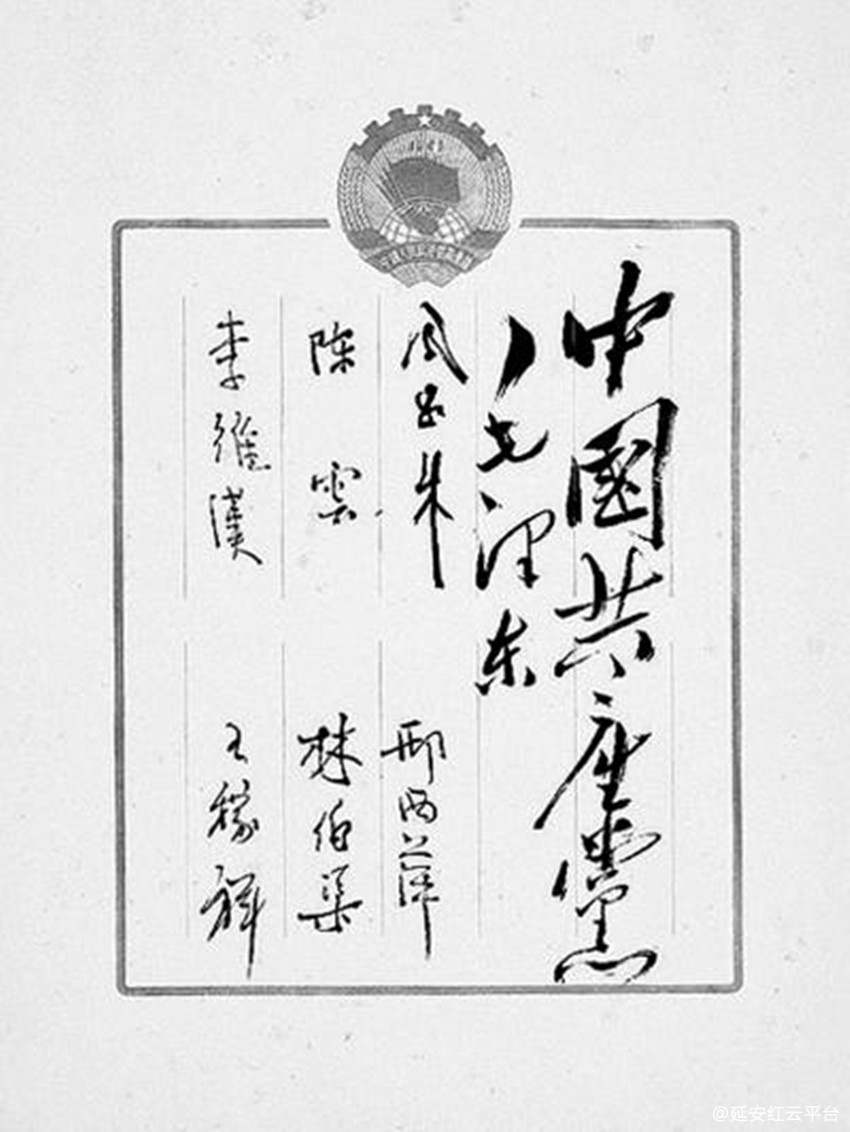 中國共産黨
毛泽东
周恩来
邢西萍
陈雲
林伯渠
李維漢
王稼祥
@延安红云平台